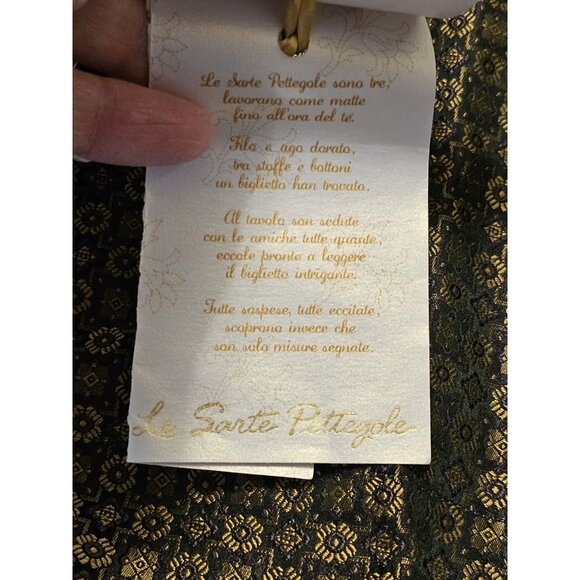 Le Sarte Pettegole sono tre,
lavorano come matte
fino all'ora del té.
Filo e ago dorato,
tra stoffe e bottoni
un biglietto han trovato.
Al tavolo son sedute
con le amiche tutte quante,
eccole pronte a leggere
il biglietto intrigante.
Tutte sospese, tutte eccitate,
scoprono invece che
son solo misure segnate.
Le Sarte Pettegole